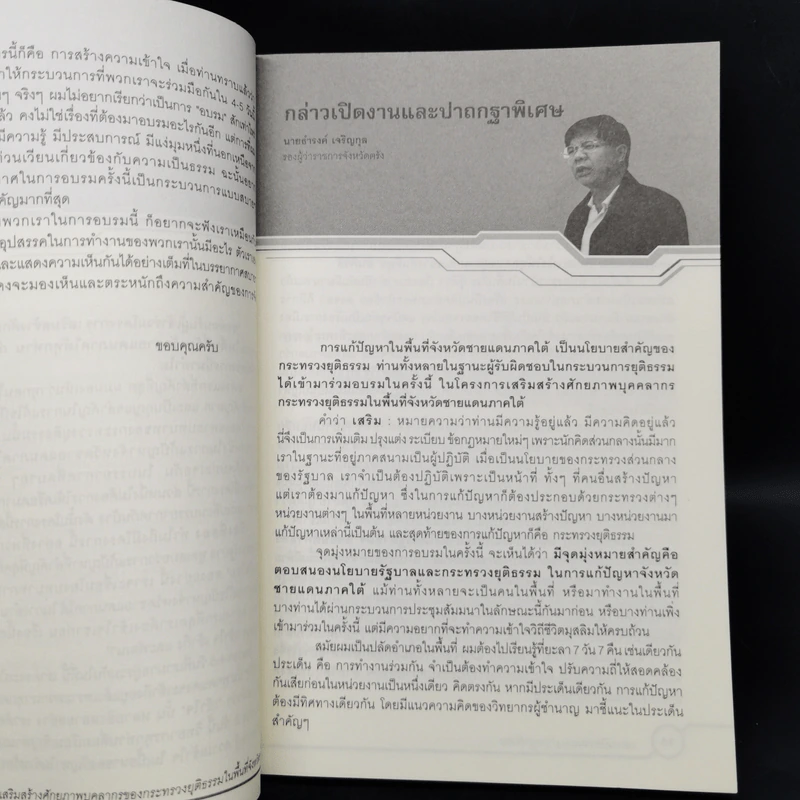 รนี้ก็คือ การสร้างความเข้าใจ เมื่อท่านทราบแล้วว่า
าให้กระบวนการที่พวกเราจะร่วมมือกันใน 4-5 วันนี้
ๆ จริงๆ ผมไม่อยากเรียกว่าเป็นการ "อบรม" สักเท่าไหร่
ล้ว คงไม่ใช่เรื่องที่ต้องมาอบรมอะไรกันอีก แต่การที่
มีความรู้ มีประสบการณ์ มีแง่มุมหนึ่งที่นอกเหนือจาก
ส่วนเวียนเกี่ยวข้องกับความเป็นธรรม ฉะนั้น
าศในการอบรมครั้งนี้เป็นกระบวนการแบบ
คัญมากที่สุด
พวกเราในการอบรมนี้ ก็อยากจะฟังเราเหมือนกัน
อุปสรรคในการทำงานของพวกเรานั้นมีอะไร
และแสดงความเห็นกันได้อย่างเต็มที่ในบรรยากาศ
คงจะมองเห็นและตระหนักถึงความสำคัญของการ
ขอบคุณครับ
เสริมสร้างศักยภาพบุคลากรของกระทรวงยุติธรรมในพื้นที่จังหวัด
กล่าวเปิดงานและปาถกฐาพิเศษ
นายธำรงค์ เจริญกุล
รองผู้ว่าราชการจังหวัดตรัง
การแก้ปัญหาในพื้นที่จังหวัดชายแดนภาคใต้ เป็นนโยบายสำคัญของ
กระทรวงยุติธรรม ท่านทั้งหลายในฐานะผู้รับผิดชอบในกระบวนการยุติธรรม
ได้เข้ามาร่วมอบรมในครั้งนี้ ในโครงการเสริมสร้างศักยภาพบุคคลากร
กระทรวงยุติธรรมในพื้นที่จังหวัดชายแดนภาคใต้
คำว่า เสริม : หมายความว่าท่านมีความรู้อยู่แล้ว มีความคิดอยู่แล้ว
นี่จึงเป็นการเพิ่มเติม ปรุงแต่ง ระเบียบ ข้อกฎหมายใหม่ๆ เพราะนักคิดส่วนกลางนั้นมีมาก
เราในฐานะที่อยู่ภาคสนามเป็นผู้ปฏิบัติ เมื่อเป็นนโยบายของกระทรวงส่วนกลาง
ของรัฐบาล เราจำเป็นต้องปฏิบัติเพราะเป็นหน้าที่ ทั้งๆ ที่คนอื่นสร้างปัญหา
แต่เราต้องมาแก้ปัญหา ซึ่งในการแก้ปัญหาก็ต้องประกอบด้วยกระทรวงต่างๆ
หน่วยงานต่างๆ ในพื้นที่หลายหน่วยงาน บางหน่วยงานสร้างปัญหา บางหน่วยงานมา
แก้ปัญหาเหล่านี้เป็นต้น และสุดท้ายของการแก้ปัญหาก็คือ กระทรวงยุติธรรม
จุดมุ่งหมายของการอบรมในครั้งนี้ จะเห็นได้ว่า มีจุดมุ่งหมายสำคัญคือ
ตอบสนองนโยบายรัฐบาลและกระทรวงยุติธรรม ในการแก้ปัญหาจังหวัด
ชายแดนภาคใต้ แม้ท่านทั้งหลายจะเป็นคนในพื้นที่ หรือมาทำงานในพื้นที่
บางท่านได้ผ่านกระบวนการประชุมสัมมนาในลักษณะนี้กันมาก่อน หรือบางท่านเพิ่ง
เข้ามาร่วมในครั้งนี้ แต่มีความอยากที่จะทำความเข้าใจวิถีชีวิตมุสลิมให้ครบถ้วน
สมัยผมเป็นปลัดอำเภอในพื้นที่ ผมต้องไปเรียนรู้ที่ยะลา 7 วัน 7 คืน เช่นเดียวกัน
ประเด็น คือ การทำงานร่วมกัน จำเป็นต้องทำความเข้าใจ ปรับความถี่ให้สอดคล้อง
กันเสียก่อนในหน่วยงานเป็นหนึ่งเดียว คิดตรงกัน หากมีประเด็นเดียวกัน การแก้ปัญหา
ต้องมีทิศทางเดียวกัน โดยมีแนวความคิดของวิทยากรผู้ชำนาญ มาชี้แนะในประเด็น
สำคัญๆ